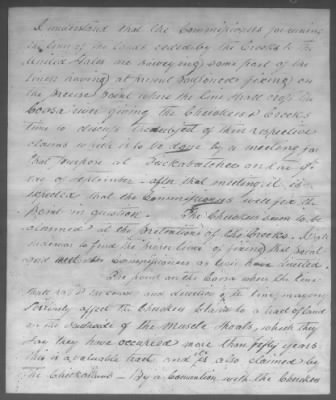 I understand that the Commissioners for running
the lines of the lands ceded by the Creeks to the
United States are surveying some part of the
lines having at present postponed fixing on
the precise point where the line shall cross the
Coosa river giving the Cherokees & Creeks
time to discuss the subject of their respective
claims which is to be done by a meeting for
that purpose at Tuckabatchee
of September. after that meeting it is
expected that the Commissioners will fix the
point in question. The Cherokees seem to be
alarmed at the pretentions of the Creeks.
endeavor to find the of fixing that point
and the Commissioners as well have limited.
The point on the Coosa where the line
shall and direction of the line, may very
seriously affect the Cherokee Claim to a tract of land
on the southside of the Muscle Shoals, which they
say they have occupied more than fifty years.
this is a valuable tract and is also claimed by
the Chickasaws — By a Convention with the Cherokees